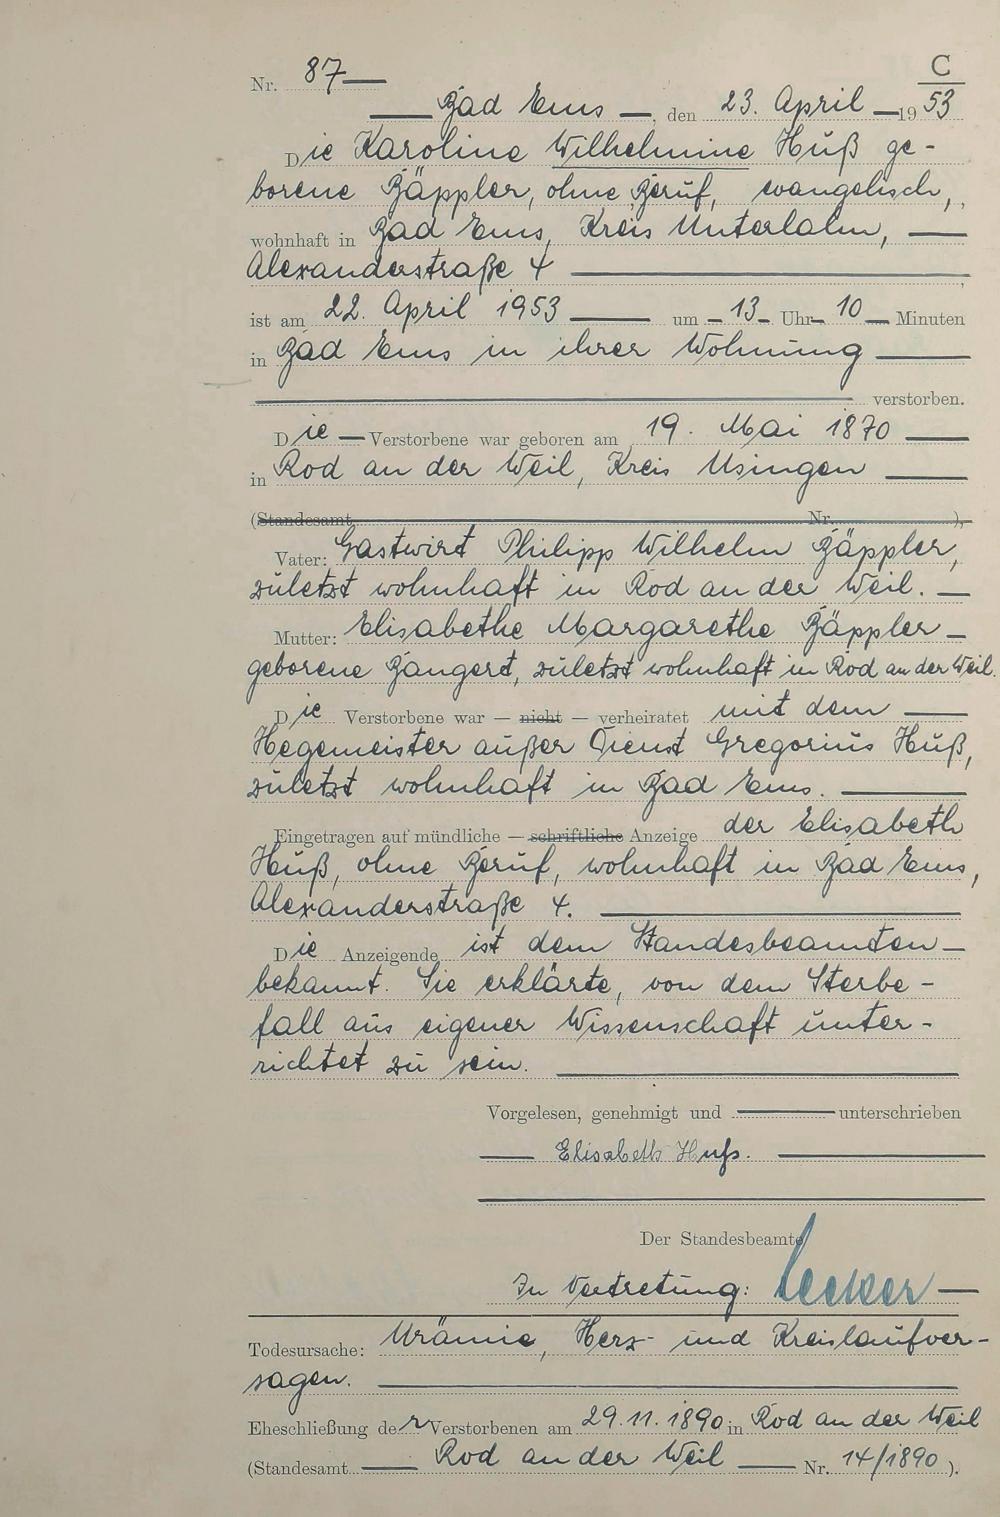 C
Nr. 87
Bad Ems, den 23. April 1953
Die Karoline Wilhelmine Huß ge-
borene Bäppler, ohne Beruf, evangelisch,
wohnhaft in Bad Ems, Kreis Unterlahn,
Alexanderstraße 4
ist am 22. April 1953 um 13 Uhr 10 Minuten
in Bad Ems in ihrer Wohnung
verstorben.
Die Verstorbene war geboren am 19. Mai 1870
in Rod an der Weil, Kreis Usingen
(Standesamt Nr. ),
Vater: Gastwirt Philipp Wilhelm Bäppler,
zuletzt wohnhaft in Rod an der Weil.
Mutter: Elisabethe Margarethe Bäppler
geborene Bangert, zuletzt wohnhaft in Rod an der Weil.
Die Verstorbene war — nicht — verheiratet mit dem
Hegemeister außer Dienst Gregorius Huß,
zuletzt wohnhaft in Bad Ems.
Eingetragen auf mündliche — schriftliche Anzeige der Elisabeth
Huß, ohne Beruf, wohnhaft in Bad Ems,
Alexanderstraße 4.
Die Anzeigende ist dem Standesbeamten
bekannt. Sie erklärte, von dem Sterbe-
fall aus eigener Wissenschaft unter-
richtet zu sein.
Vorgelesen, genehmigt und unterschrieben
Elisabeth Huß.
Der Standesbeamte
In Vertretung:
Todesursache: Urämie, Herz- und Kreislaufver-
sagen.
Eheschließung der Verstorbenen am 29.11.1890 in Rod an der Weil
(Standesamt Rod an der Weil Nr. 14/1890).